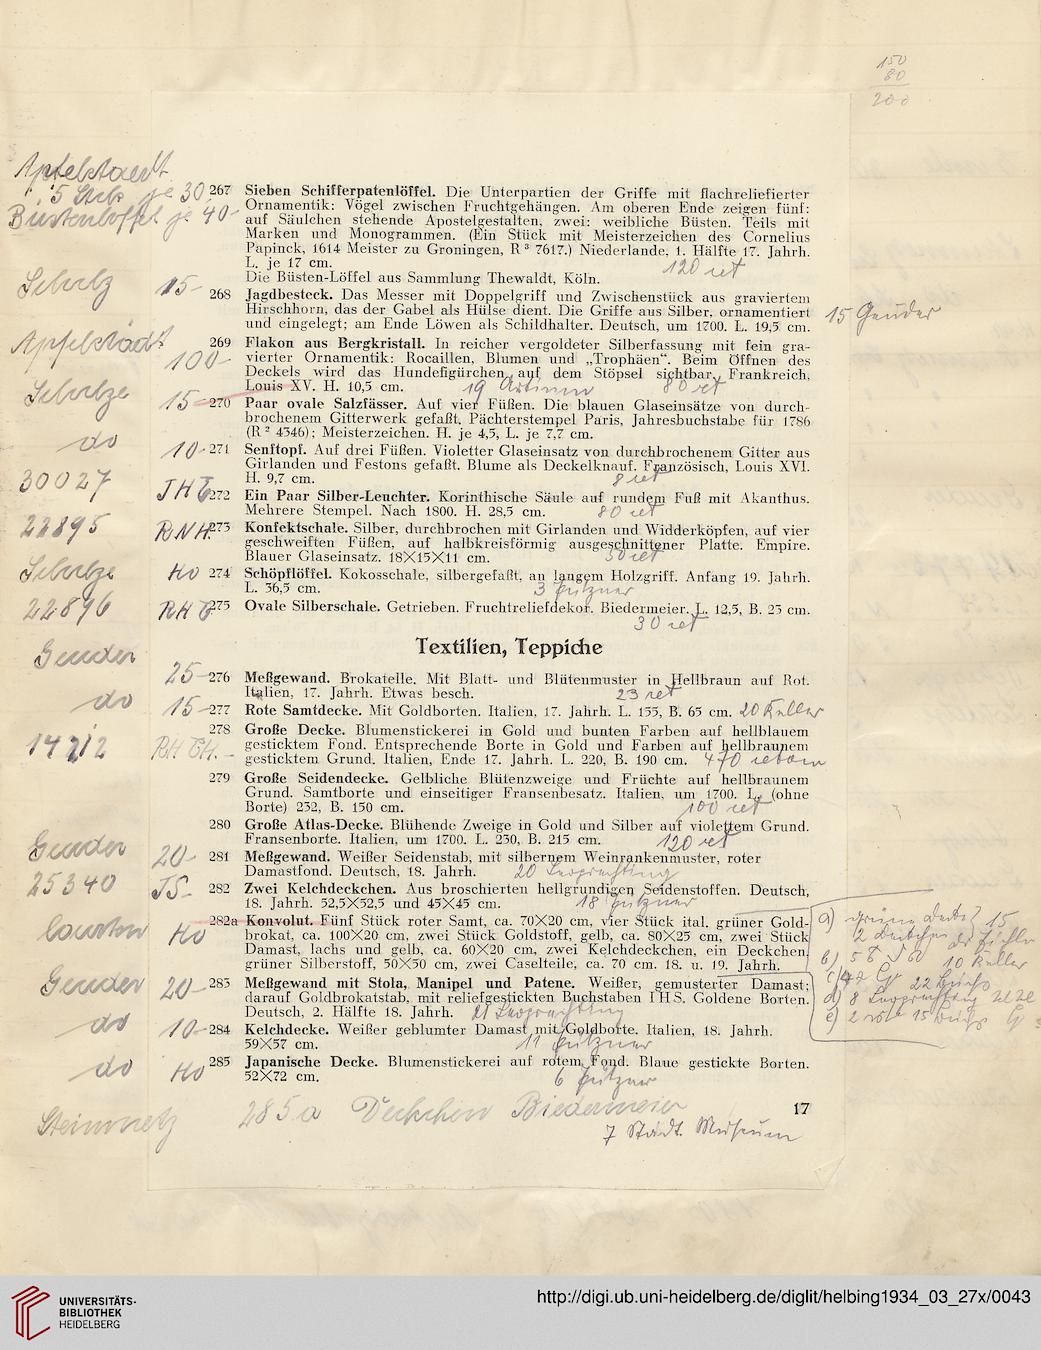 150
80
200
Apfelstaedt
5 Stck je 30
Büstenlöffel je 40-
267 Sieben Schifferpatenlöffel. Die Unterpartien der Griffe mit flachreliefierter
Ornamentik: Vögel zwischen Fruchtgehängen. Am oberen Ende zeigen fünf:
auf Säulchen stehende Apostelgestalten, zwei: weibliche Büsten. Teils mit
Marken und Monogrammen. (Ein Stück mit Meisterzeichen des Cornelius
Papinck, 1614 Meister zu Groningen, R³ 7617.) Niederlande, 1. Hälfte 17. Jahrh.
L. je 17 cm. 120 ret
Die Büsten-Löffel aus Sammlung Thewaldt, Köln.
15-
268 Jagdbesteck. Das Messer mit Doppelgriff und Zwischenstück aus graviertem
Hirschhorn, das der Gabel als Hülse dient. Die Griffe aus Silber, ornamentiert
und eingelegt; am Ende Löwen als Schildhalter. Deutsch, um 1700. L. 19,5 cm.
15 Geuder
Apfelstädt
100-
269 Flakon aus Bergkristall. In reicher vergoldeter Silberfassung mit fein gra-
vierter Ornamentik: Rocaillen, Blumen und „Trophäen“. Beim Öffnen des
Deckels wird das Hundefigürchen auf dem Stöpsel sichtbar. Frankreich,
Louis XV. H. 10,5 cm. 80 ret
15-
270 Paar ovale Salzfässer. Auf vier Füßen. Die blauen Glaseinsätze von durch-
brochenem Gitterwerk gefaßt. Pächterstempel Paris, Jahresbuchstabe für 1786
(R² 4346); Meisterzeichen. H. je 4,5, L. je 7,7 cm.
do 10-
271 Senftopf. Auf drei Füßen. Violetter Glaseinsatz von durchbrochenem Gitter aus
Girlanden und Festons gefaßt. Blume als Deckelknauf. Französisch, Louis XVI.
H. 9,7 cm. 8 ret
30027
272 Ein Paar Silber-Leuchter. Korinthische Säule auf rundem Fuß mit Akanthus.
Mehrere Stempel. Nach 1800. H. 28,5 cm. 80 ret
22895
273 Konfektschale. Silber, durchbrochen mit Girlanden und Widderköpfen, auf vier
geschweiften Füßen, auf halbkreisförmig ausgeschnittener Platte. Empire.
Blauer Glaseinsatz. 18×15×11 cm. 50 ret
Ho
274 Schöpflöffel. Kokosschale, silbergefaßt, an langem Holzgriff. Anfang 19. Jahrh.
L. 36,5 cm. 3 Pützner
22896
275 Ovale Silberschale. Getrieben. Fruchtreliefdekor. Biedermeier. L. 12,5, B. 23 cm.
30 ret
Textilien, Teppiche
Geuder 25-
276 Meßgewand. Brokatelle. Mit Blatt- und Blütenmuster in Hellbraun auf Rot.
Italien, 17. Jahrh. Etwas besch. 23 ret
do 15-
277 Rote Samtdecke. Mit Goldborten. Italien, 17. Jahrh. L. 155, B. 65 cm. 20 Küller
14212
278 Große Decke. Blumenstickerei in Gold und bunten Farben auf hellblauem
gesticktem Fond. Entsprechende Borte in Gold und Farben auf hellbraunem
gesticktem Grund. Italien, Ende 17. Jahrh. L. 220, B. 190 cm.
279 Große Seidendecke. Gelbliche Blütenzweige und Früchte auf hellbraunem
Grund. Samtborte und einseitiger Fransenbesatz. Italien, um 1700. L. (ohne
Borte) 232, B. 150 cm. 100 ret
280 Große Atlas-Decke. Blühende Zweige in Gold und Silber auf violettem Grund.
Fransenborte. Italien, um 1700. L. 230, B. 215 cm. 120 ret
Geuder 20-
281 Meßgewand. Weißer Seidenstab, mit silbernem Weinrankenmuster, roter
Damastfond. Deutsch, 18. Jahrh.
25340 JS-
282 Zwei Kelchdeckchen. Aus broschierten hellgrundigen Seidenstoffen. Deutsch,
18. Jahrh. 52,5×52,5 und 45×45 cm. 18 Pützner
Ho
282a Konvolut. Fünf Stück roter Samt, ca. 70×20 cm, vier Stück ital. grüner Gold-
brokat, ca. 100×20 cm, zwei Stück Goldstoff, gelb, ca. 80×25 cm, zwei Stück
Damast, lachs und gelb, ca. 60×20 cm, zwei Kelchdeckchen, ein Deckchen,
grüner Silberstoff, 50×50 cm, zwei Caselteile, ca. 70 cm. 18. u. 19. Jahrh.
Geuder 20-
283 Meßgewand mit Stola, Manipel und Patene. Weißer, gemusterter Damast;
darauf Goldbrokatstab, mit reliefgestickten Buchstaben IHS. Goldene Borten.
Deutsch, 2. Hälfte 18. Jahrh.
do 10-
284 Kelchdecke. Weißer geblumter Damast mit Goldborte. Italien, 18. Jahrh.
59×57 cm. 11 Pützner
do Ho
285 Japanische Decke. Blumenstickerei auf rotem Fond. Blaue gestickte Borten.
52×72 cm. 6 Pützner
Steinmetz 285a Deckchen Biedermeier
7 Städt. Museum
17
UNIVERSITÄTS-
BIBLIOTHEK
HEIDELBERG
http://digi.ub.uni-heidelberg.de/diglit/helbing1934_03_27x/0043